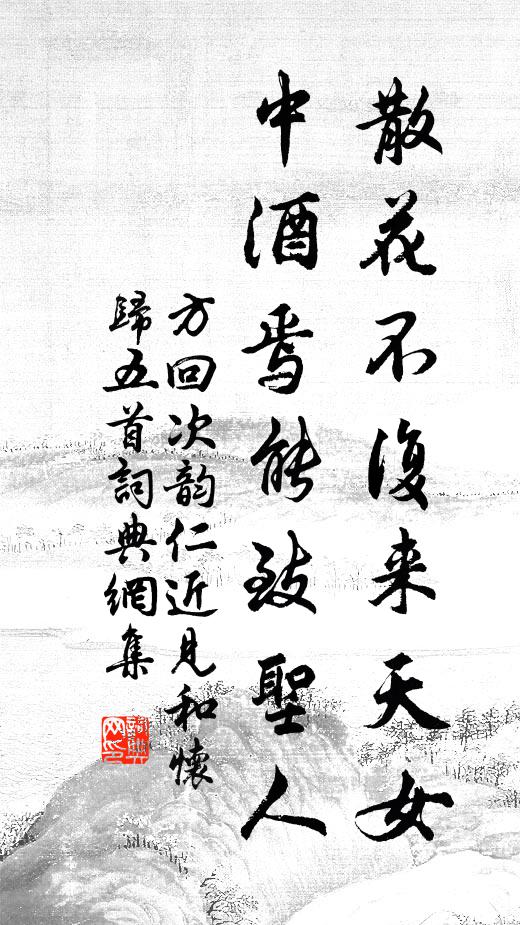 散花不復来天女
中酒焉能致聖人
方回次韵仁近見和懷
歸五首詞典網集